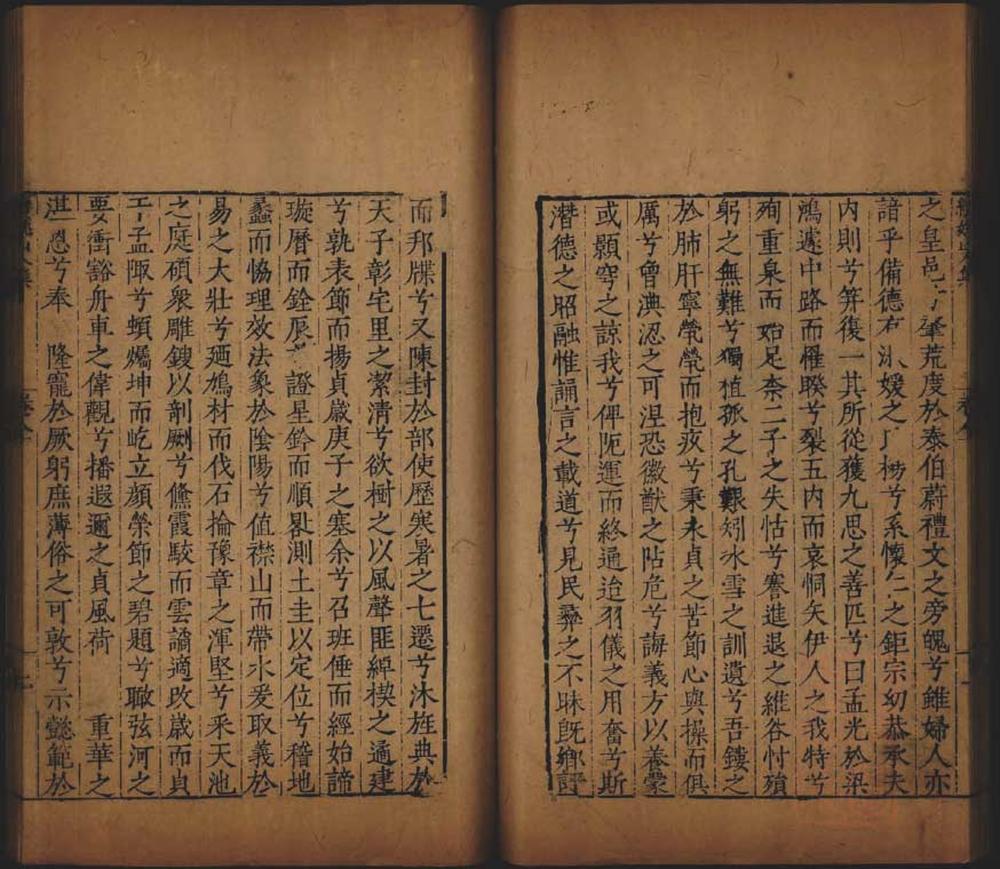 之皇邑兮肇荒度於泰伯蔚禮文之旁魄兮雖婦人亦
諳乎備德有淑媛之楊兮系懷仁之鉅宗幼恭承夫
内則兮笄復一其所從獲九思之善匹兮曰孟光於梁
鴻遽中路而罹睽兮裂五内而哀恫矢伊人之我特兮
殉重泉而始足柰二子之失怙兮謇進退之維谷忖殞
躬之無難兮獨植孤之孔艱矧冰雪之訓遺兮吾鏤之
於肺肝寧煢煢而抱疚兮秉永貞之苦節心與操而俱
厲兮曾淟涊之可涅恐徽猷之阽危兮誨義方以養蒙
或顥穹之諒我兮俾阨運而終通迨羽儀之用奮兮斯
潛德之昭融惟誦言之載道兮見民彝之不昧旣鄉評
而邦牒兮又陳封於部使歷寒暑之七遷兮沐旌典於
天子彰宅里之潔清兮欲樹之以風聲匪綽楔之逼建
兮孰表節而揚貞歲庚子之塞余兮召班倕而經始諦
璇曆而銓辰兮證星鈴而順晷測土圭以定位兮稽地
蠡而恊理效法象於陰陽兮值襟山而帶水爰取義於
易之大壯兮廼鳩材而伐石掄豫章之渾堅兮采天池
之庭碩衆雕鎪以剞劂兮儵霞駮而雲譎適改歲而貞
于孟陬兮蝢㸎坤而屹立顔榮節之碧題兮瞰弦河之
要衝豁舟車之偉觀兮播遐邇之貞風荷　重華之
湛恩兮奉　隆寵於厥躬庶薄俗之可敦兮示懿範於